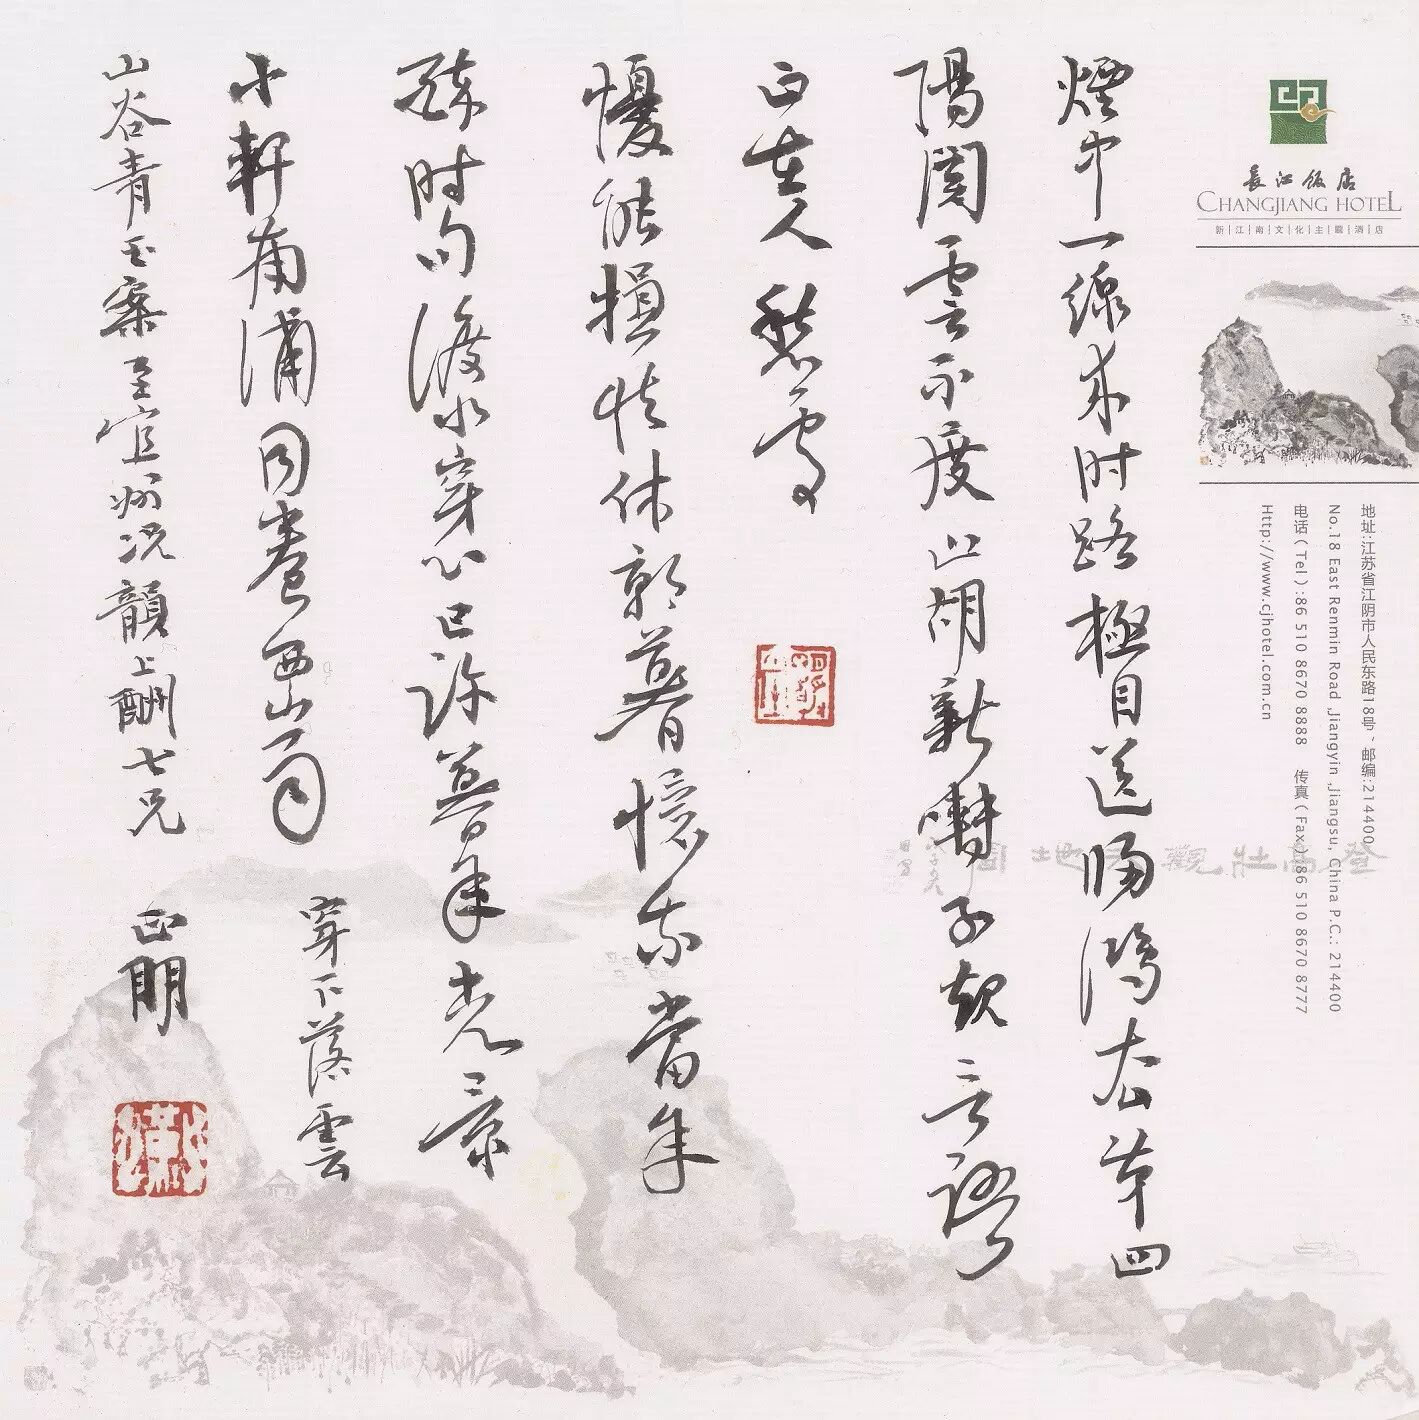 長江飯店
CHANGJIANG HOTEL
新江南文化主題酒店
地址:江苏省江阴市人民东路18号,邮编:214400
No.18 East Renmin Road ,Jiangyin ,Jiangsu, China P.C.: 214400
电话(Tel):86 510 8670 8888 传真(Fax):86 510 8670 8777
Http://www.cjhotel.com.cn
煙中一線来时路極目送歸鴻去第四
陽関雲不度山胡新囀子規言語
正在人愁處
懮能損性休朝暮憶我當年
醉时句渡水穿心已許暮年光景
小軒南浦同卷西山雨
穿下落雲
山谷青玉案至宜州次韻上酬七兄
正明